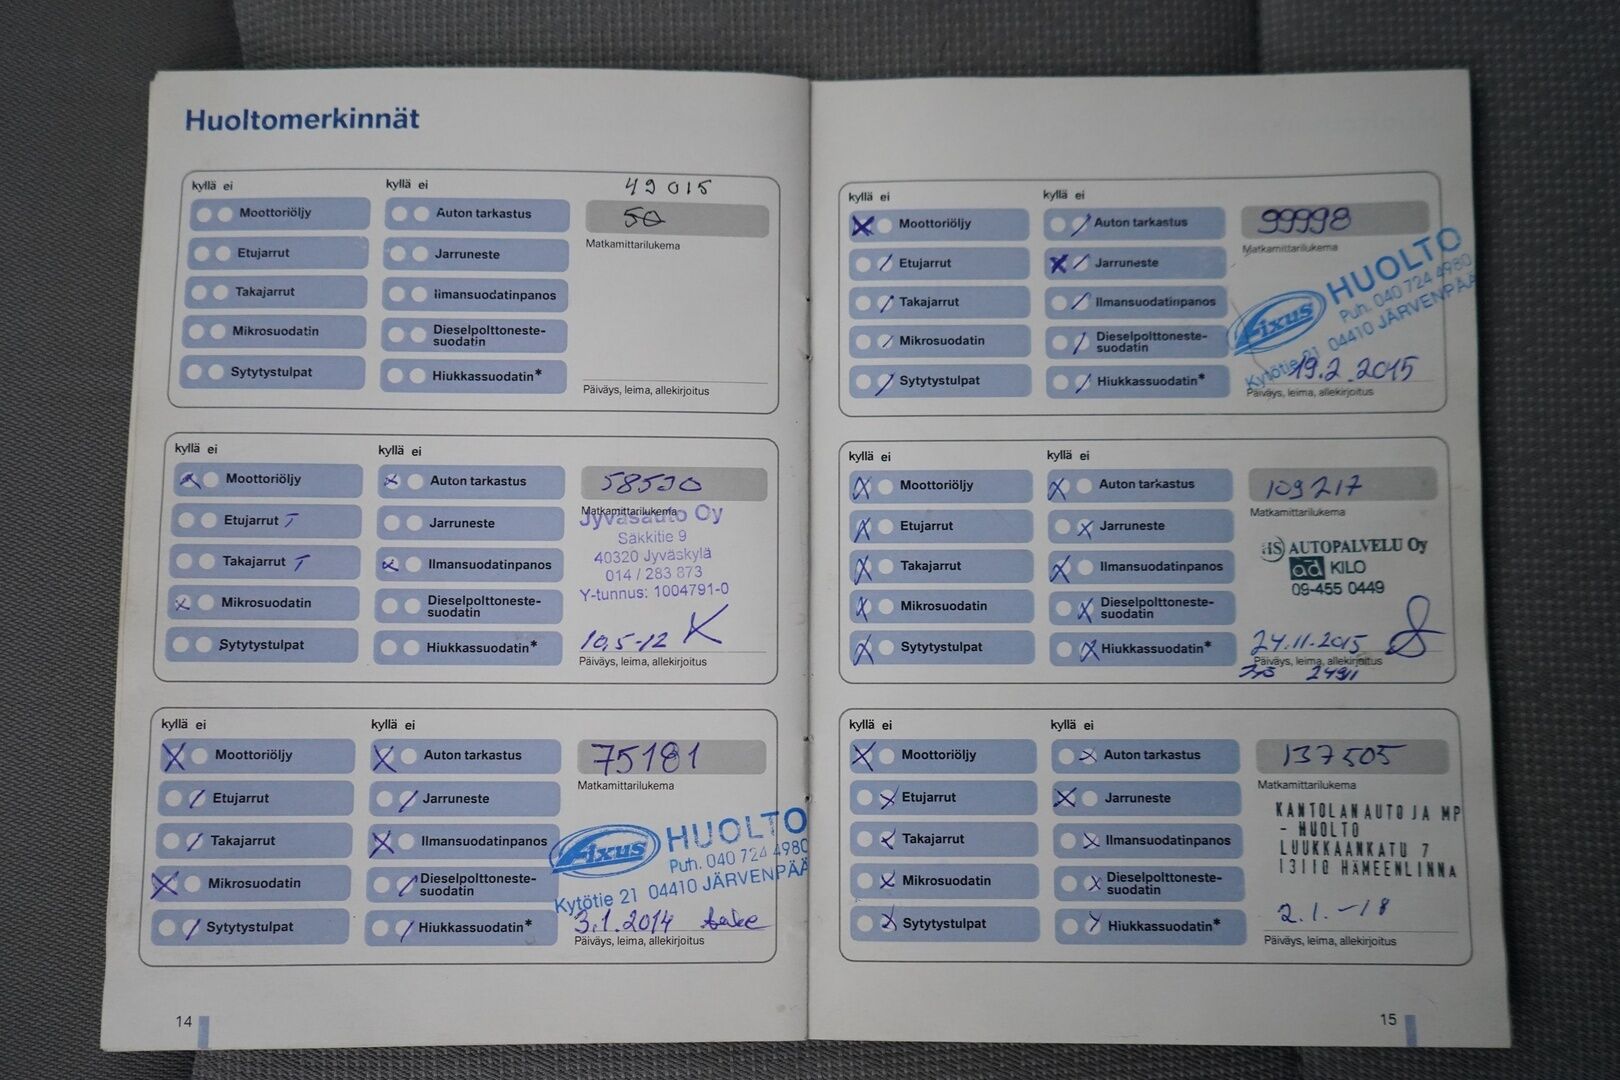 Huoltomerkinnät
kyllä ei
Moottoriöljy
Etujarrut
Takajarrut
Mikrosuodatin
Sytytystulpat
kyllä ei
Auton tarkastus
Jarruneste
Ilmansuodatinpanos
Dieselpolttoneste-
suodatin
Hiukkassuodatin*
49015
50
Matkamittarilukema
Päiväys, leima, allekirjoitus
kyllä ei
Moottoriöljy
Etujarrut T
Takajarrut T
Mikrosuodatin
Sytytystulpat
kyllä ei
Auton tarkastus
Jarruneste
Ilmansuodatinpanos
Dieselpolttoneste-
suodatin
Hiukkassuodatin*
58530
Matkamittarilukema
Jyväsauto Oy
Säkkitie 9
40320 Jyväskylä
014 / 283 873
Y-tunnus: 1004791-0
10.5-12
Päiväys, leima, allekirjoitus
kyllä ei
Moottoriöljy
Etujarrut
Takajarrut
Mikrosuodatin
Sytytystulpat
kyllä ei
Auton tarkastus
Jarruneste
Ilmansuodatinpanos
Dieselpolttoneste-
suodatin
Hiukkassuodatin*
75181
Matkamittarilukema
Fixus HUOLTO
Puh. 040 724 4980
Kytötie 21 04410 JÄRVENPÄÄ
3.1.2014
Päiväys, leima, allekirjoitus
14
kyllä ei
Moottoriöljy
Etujarrut
Takajarrut
Mikrosuodatin
Sytytystulpat
kyllä ei
Auton tarkastus
Jarruneste
Ilmansuodatinpanos
Dieselpolttoneste-
suodatin
Hiukkassuodatin*
99998
Matkamittarilukema
Fixus HUOLTO
Puh. 040 724 4980
Kytötie 21 04410 JÄRVENPÄÄ
19.2.2015
Päiväys, leima, allekirjoitus
kyllä ei
Moottoriöljy
Etujarrut
Takajarrut
Mikrosuodatin
Sytytystulpat
kyllä ei
Auton tarkastus
Jarruneste
Ilmansuodatinpanos
Dieselpolttoneste-
suodatin
Hiukkassuodatin*
109217
Matkamittarilukema
HS AUTOPALVELU Oy
ad KILO
09-455 0449
24.11.2015
Päiväys, leima, allekirjoitus
kyllä ei
Moottoriöljy
Etujarrut
Takajarrut
Mikrosuodatin
Sytytystulpat
kyllä ei
Auton tarkastus
Jarruneste
Ilmansuodatinpanos
Dieselpolttoneste-
suodatin
Hiukkassuodatin*
137505
Matkamittarilukema
KANTOLAN AUTO JA MP
- HUOLTO
LUUKKAANKATU 7
13110 HÄMEENLINNA
2.1.-18
Päiväys, leima, allekirjoitus
15